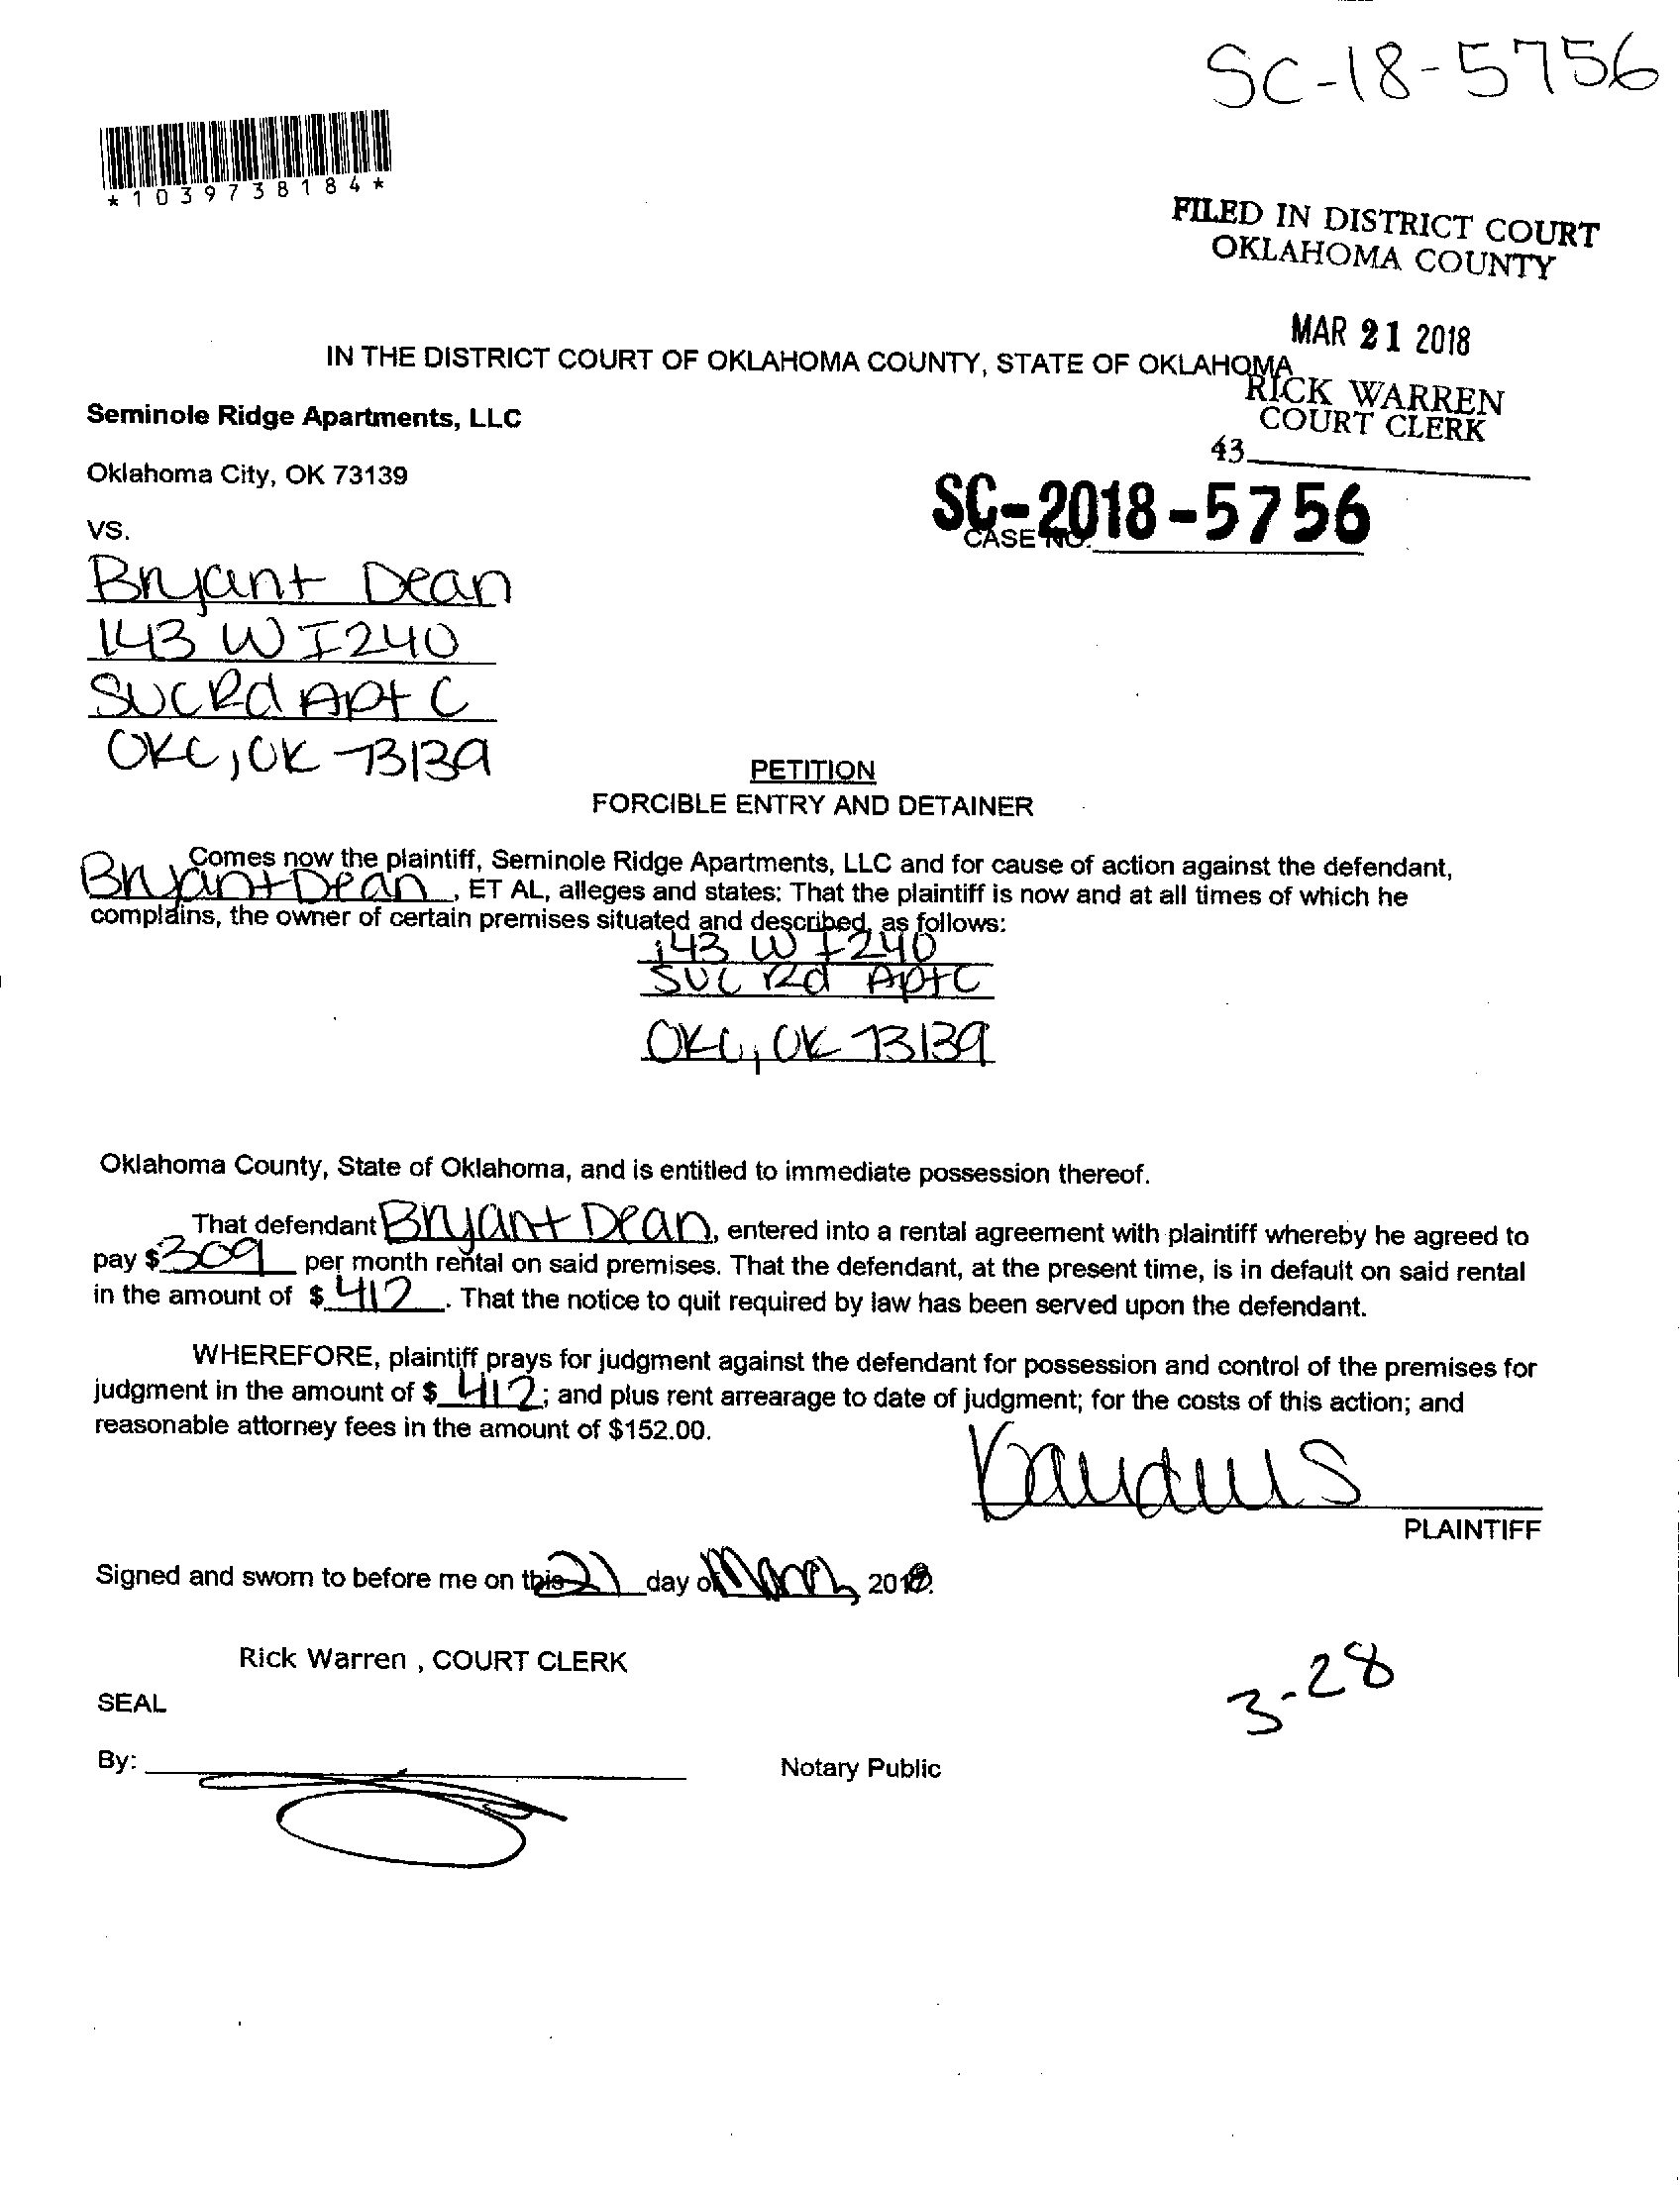 SC-18-5756
*1039738184*
FILED IN DISTRICT COURT
OKLAHOMA COUNTY
MAR 21 2018
RICK WARREN
COURT CLERK
43
IN THE DISTRICT COURT OF OKLAHOMA COUNTY, STATE OF OKLAHOMA
Seminole Ridge Apartments, LLC
Oklahoma City, OK 73139
VS.
SC-2018-5756
CASE NO.
Bryant Dean
143 W I240
SVC Rd Apt C
OKC, OK 73139
PETITION
FORCIBLE ENTRY AND DETAINER
Comes now the plaintiff, Seminole Ridge Apartments, LLC and for cause of action against the defendant,
Bryant Dean, ET AL, alleges and states: That the plaintiff is now and at all times of which he
complains, the owner of certain premises situated and described, as follows:
143 W I240
SVC Rd Apt C
OKC, OK 73139
Oklahoma County, State of Oklahoma, and is entitled to immediate possession thereof.
That defendant Bryant Dean, entered into a rental agreement with plaintiff whereby he agreed to
pay $309 per month rental on said premises. That the defendant, at the present time, is in default on said rental
in the amount of $412. That the notice to quit required by law has been served upon the defendant.
WHEREFORE, plaintiff prays for judgment against the defendant for possession and control of the premises for
judgment in the amount of $412; and plus rent arrearage to date of judgment; for the costs of this action; and
reasonable attorney fees in the amount of $152.00.
PLAINTIFF
Signed and sworn to before me on this 21 day of March, 2018.
Rick Warren , COURT CLERK
3-28
SEAL
By:
Notary Public